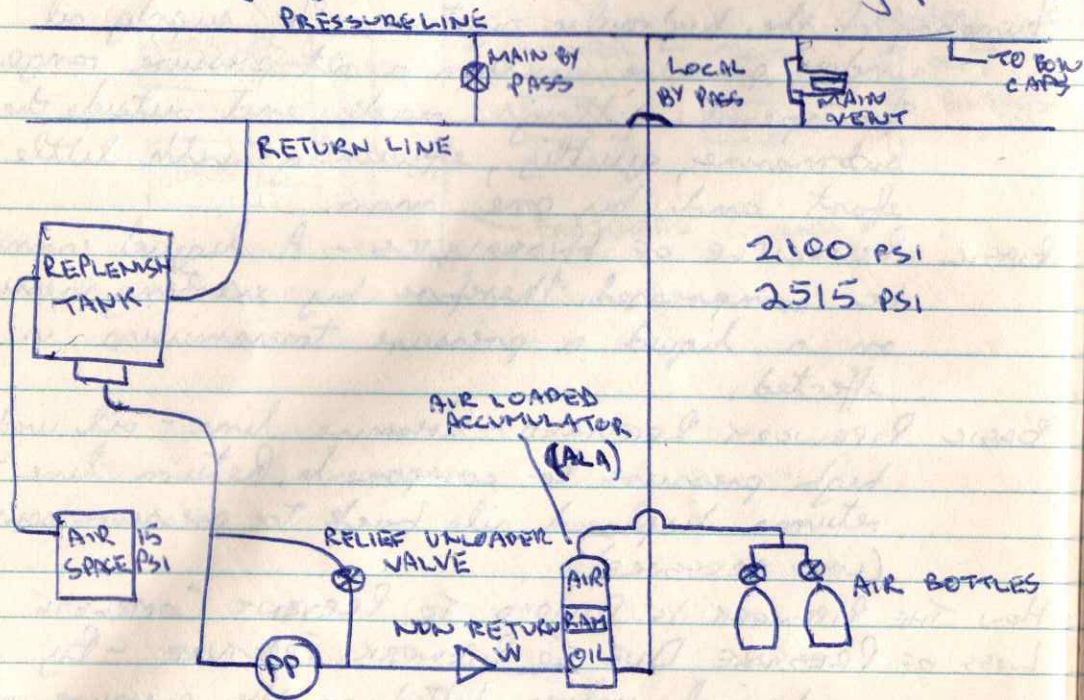 PRESSURE LINE
MAIN BY
PASS
LOCAL
BY PASS
MAIN
VENT
TO BOW
CAPS
RETURN LINE
REPLENISH
TANK
2100 PSI
2515 PSI
AIR LOADED
ACCUMULATOR
(ALA)
AIR
SPACE
15
PSI
RELIEF UNLOADER
VALVE
AIR
RAM
OIL
AIR BOTTLES
NON RETURN
V/V
PP